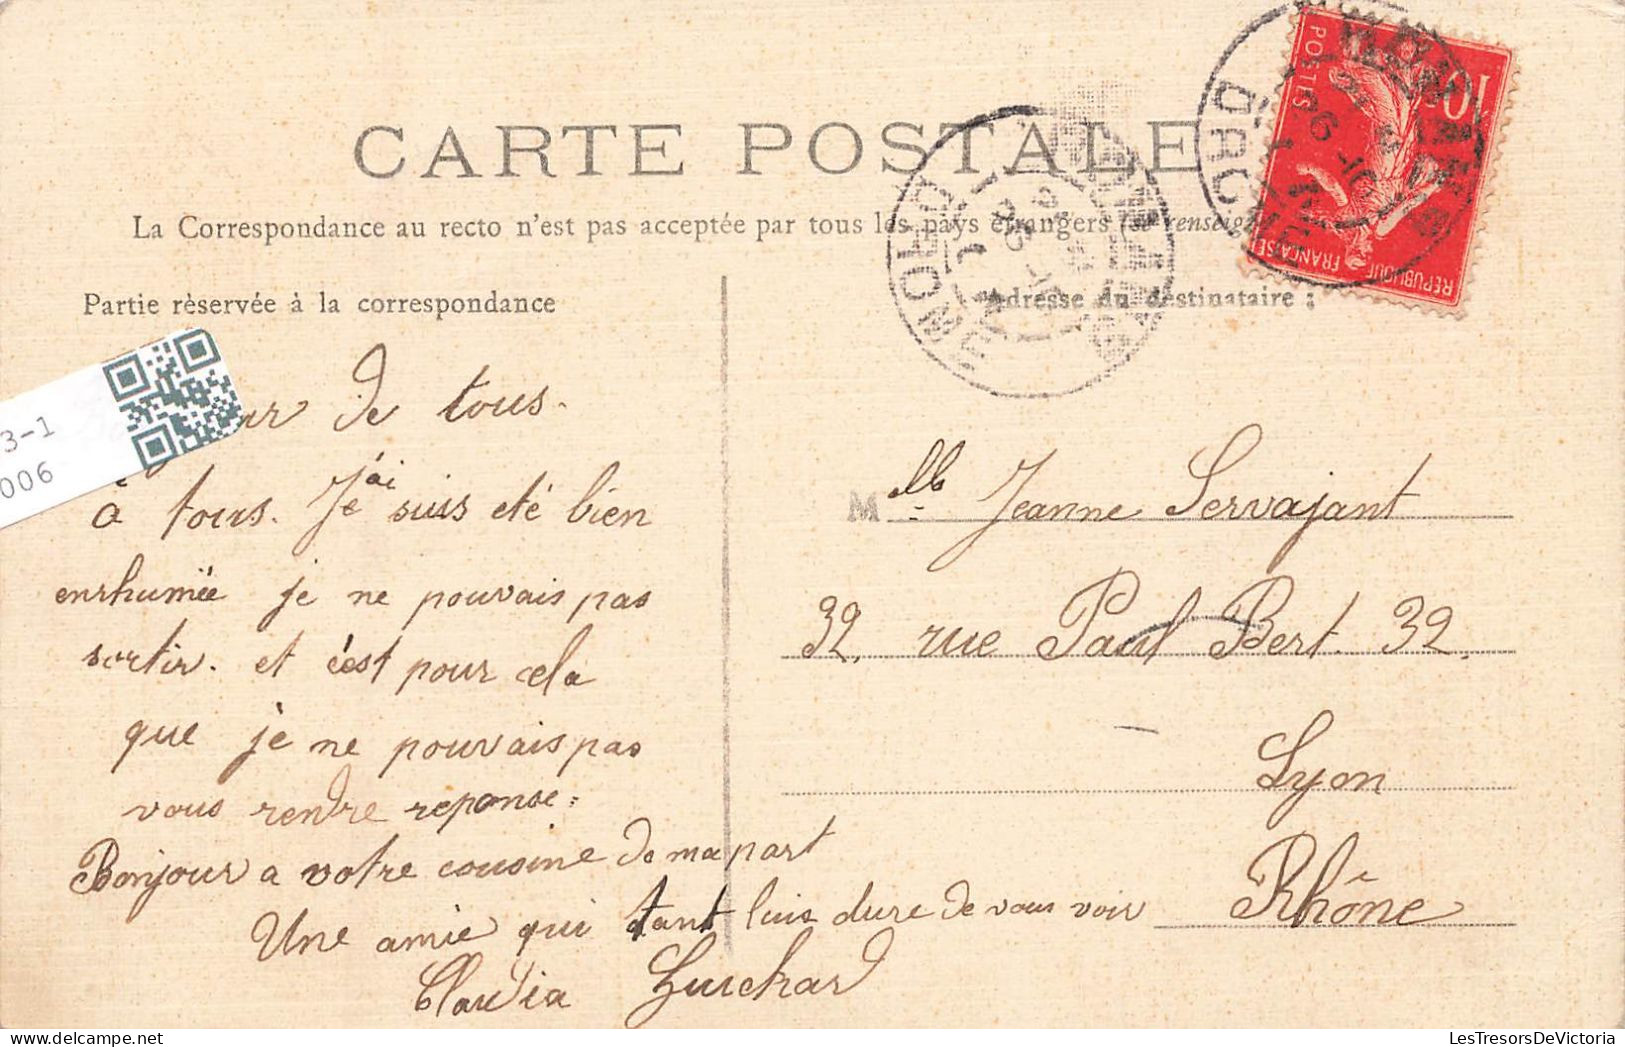 CARTE POSTALE
La Correspondance au recto n'est pas acceptée par tous les pays étrangers (se renseig
Partie rèservée à la correspondance
Adresse du destinataire :
POSTES
10
REPUBLIQUE FRANÇAISE
3-1
006
de tous.
a tous. Je j'ai suis eté bien
enrhumée je ne pouvais pas
sortir. et c'est pour cela
que je ne pouvais pas
vous rendre reponse.
Bonjour a votre cousine de ma part
Une amie qui tant luis dure de vous voir
Claudia
Mlle Jeanne Servajant
32, rue Paul Bert. 32.
Lyon
Rhône
LesTresorsDeVictoria